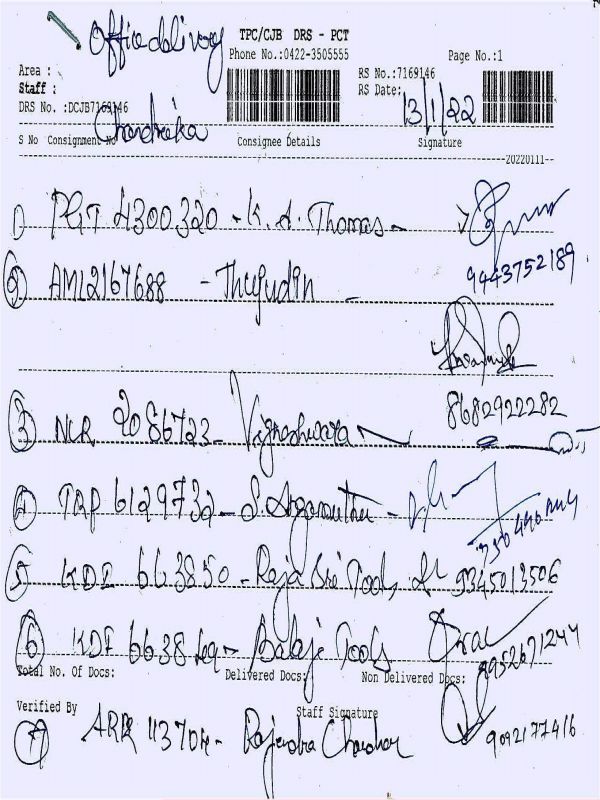 Office delivery
TPC/CJB DRS - PCT
Phone No.:0422-3505555
Page No.:1
Area :
Staff :
DRS No. :DCJB7169146
RS No.:7169146
RS Date:
13/1/22
Chandrika
S No Consignment No Consignee Details Signature
20220111
1) PGT 4300320 - K. A. Thomas -
9443752189
2) AMI2167688 - Thajudin -
8682922282
3) NCR 2086723 - Vigneshwara
4) TRP 6129732 - S. Arganuthu -
5) KDI 663850 - Raja Sri Tools, 9345013506
6) KDI 6638 - Balaji Tools
9952671244
Total No. Of Docs: Delivered Docs: Non Delivered Docs:
Verified By Staff Signature
7) ARR 43704 - Rajendra
9092177416